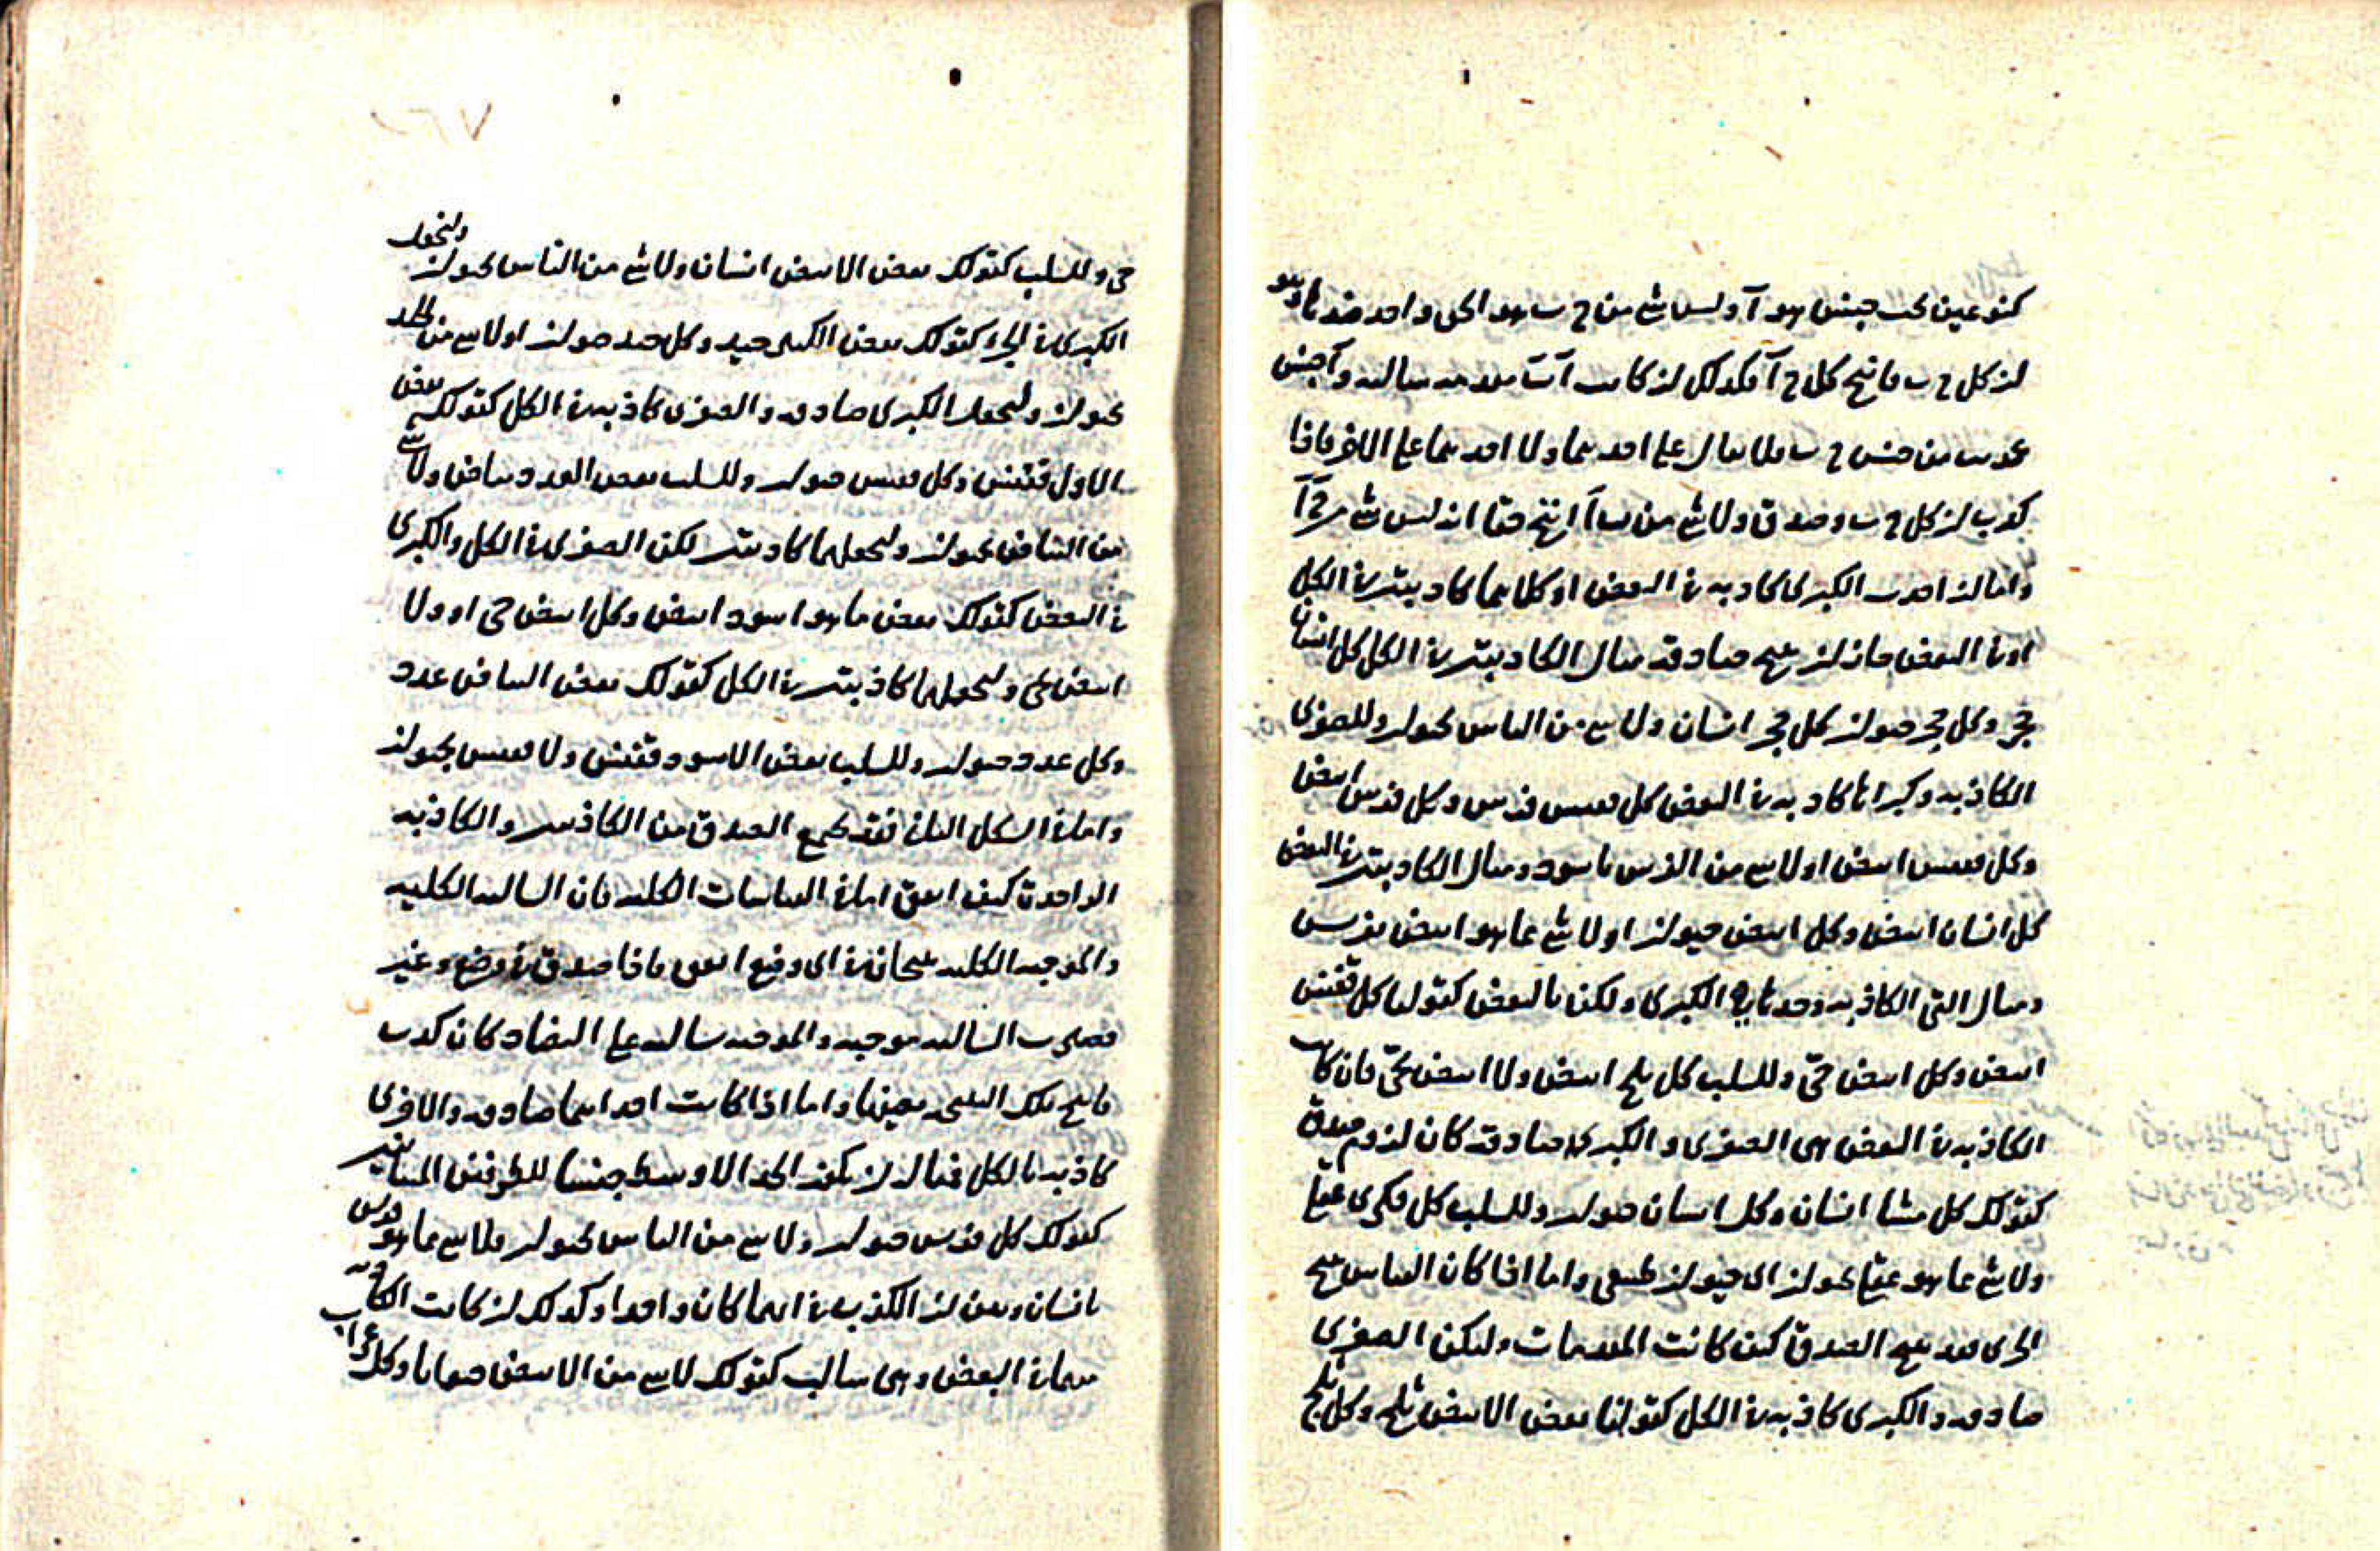 كنوعين تحت جنس هو آ وليس شئ من ج ب هو الحق واحد ضد ما هو
ان كل ج ب فانتج كل ج آ فكذلك ان كانت آ ب مقدمه سالبه وآ جنس
من جنس ج ب فلا يقال على احدهما ولا احدهما على الاخر فاذا
كذب ان كل ج ب وصدق ولا شئ من ب آ انتج حقا انه ليس شئ من ج آ
واما ان اخذت الكبرى كاذبه فى البعض او كلاهما كاذبتين فى الكل
او فى البعض جاز ان ينتج صادقه مثال الكاذبتين فى الكل كل انسان
حجر وكل حجر حيوان كل حجر انسان ولا شئ من الناس بحيوان وللصغرى
الكاذبه وكبراها كاذبه فى البعض كل ققنس فرس وكل فرس ابيض
وكل ققنس ابيض او لا شئ من الفرس باسود ومثال الكاذبتين فى البعض
كل انسان ابيض وكل ابيض حيوان او لا شئ مما هو ابيض بفرس
ومثال التى الكاذبه وحدها هى الكبرى ولكن بالبعض كقولنا كل ققنس
ابيض وكل ابيض حى وللسلب كل ثلج ابيض ولا ابيض بحى فان كانت
الكاذبه فى البعض هى الصغرى والكبرى صادقه كان لزوم صدق
كقولك كل مشاء انسان وكل انسان حيوان وللسلب كل فكرى عقلى
ولا شئ مما هو عقلى بحيوان اى حيوان طبيعى واما اذا كان القياس ينتج
الجزئى فقد ينتج الصدق كيف كانت المقدمات ولتكن الصغرى
صادقه والكبرى كاذبه فى الكل كقولنا بعض الابيض ثلج وكل ثلج
حى وللسلب كقولك بعض الابيض انسان ولا شئ من الناس بحيوان ولنجعل
الكبرى فى الجزء كقولك بعض الكبير جيد وكل جيد حيوان او لا شئ من الجيد
بحيوان ولنجعل الكبرى صادقه والصغرى كاذبه فى الكل كقولك بعض
الاول ققنس وكل ققنس حيوان وللسلب بعض العدد بياض ولا شئ
من البياض بحيوان ولنجعلهما كاذبتين لكن الصغرى فى الكل والكبرى
فى البعض كقولك بعض ما هو اسود ابيض وكل ابيض حى او ولا
ابيض بحى ولنجعلهما كاذبتين فى الكل كقولك بعض البياض عدد
وكل عدد حيوان وللسلب بعض الاسود ققنس ولا ققنس بحيوان
واما فى الشكل الثانى فقد يجمع الصدق من الكاذبتين والكاذبه
الواحدة كيف اتفق اما فى القياسات الكليه فان السالبه الكليه
والموجبه الكليه ينتجان فى اى وضع اتفق فاذا صدق فى وضع وغير
فصارت السالبه موجبه والموجبه سالبه على التضاد كان كذب
فانتج تلك النتيجه بعينها واما اذا كانت احداهما صادقه والاخرى
كاذبه بالكل فمثاله ان يكون الحد الاوسط جنسا للطرفين المتباينين
كقولك كل فرس حيوان ولا شئ من الناس بحيوان فلا شئ مما هو فرس
بانسان وبين ان الكذب فى ايهما كان واحدا وكذلك ان كانت الكاذبه
منهما فى البعض وهى سالبه كقولك لا شئ من الابيض حيوانا وكل غراب